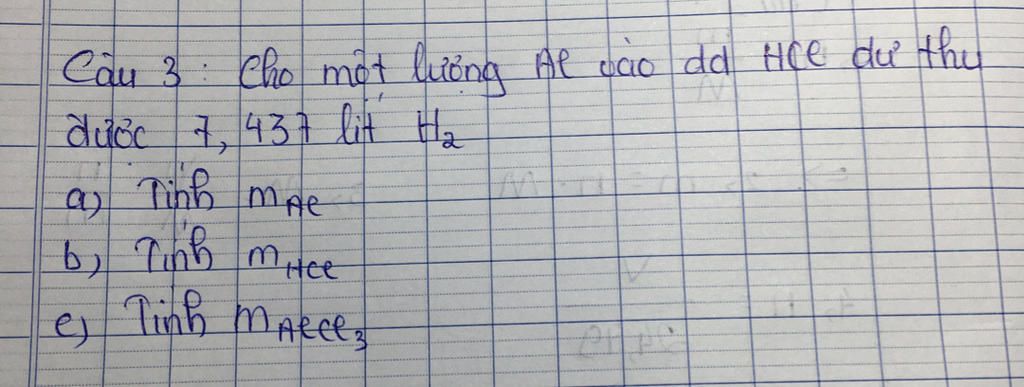 Câu 3 : Cho một lượng Al vào dd HCl dư thu
được 7,437 lít H₂
a) Tính mAl
b) Tính mHCl
c) Tính mAlCl₃